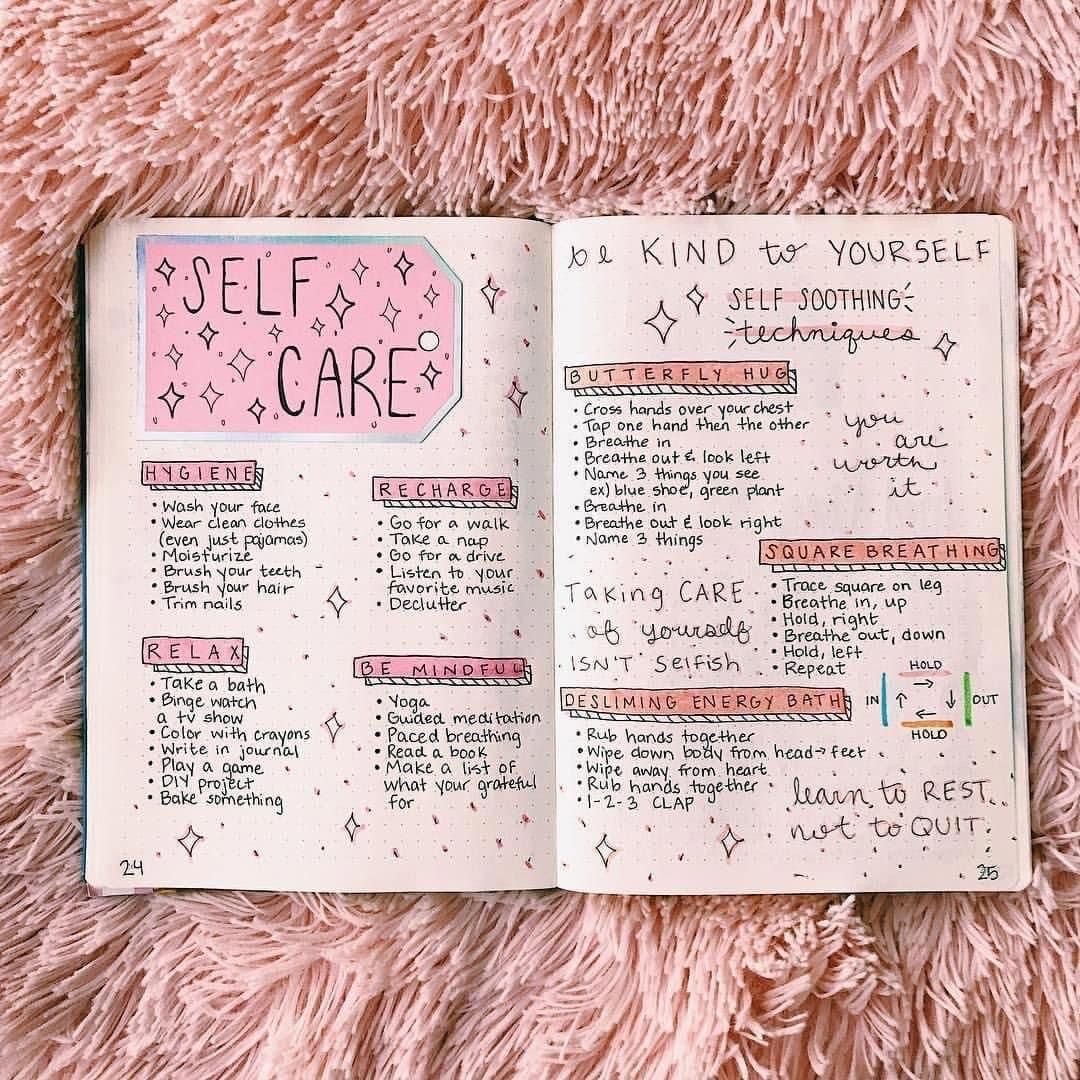 SELF
CARE
HYGIENE
• Wash your face
• Wear clean clothes
(even just pajamas)
• Moisturize
• Brush your teeth
• Brush your hair
• Trim nails
RECHARGE
• Go for a walk
• Take a nap
• Go for a drive
• Listen to your
favorite music
• Declutter
RELAX
• Take a bath
• Binge watch
a tv show
• Color with crayons
• Write in journal
• Play a game
• DIY project
• Bake something
BE MINDFUL
• Yoga
• Guided meditation
• Paced breathing
• Read a book
• Make a list of
what your grateful
for
24
be KIND to YOURSELF
SELF SOOTHING
techniques
BUTTERFLY HUG
• Cross hands over your chest
• Tap one hand then the other
• Breathe in
• Breathe out & look left
• Name 3 things you see
ex) blue shoe, green plant
• Breathe in
• Breathe out & look right
• Name 3 things
you
are
worth
it
SQUARE BREATHING
• Trace square on leg
• Breathe in, up
• Hold, right
• Breathe out, down
• Hold, left
• Repeat
HOLD
IN → ↑ ↓ ← OUT
HOLD
Taking CARE
of yourself
ISN'T selfish
DESLIMING ENERGY BATH
• Rub hands together
• Wipe down body from head→feet
• Wipe away from heart
• Rub hands together
• 1-2-3 CLAP
learn to REST
not to QUIT.
25